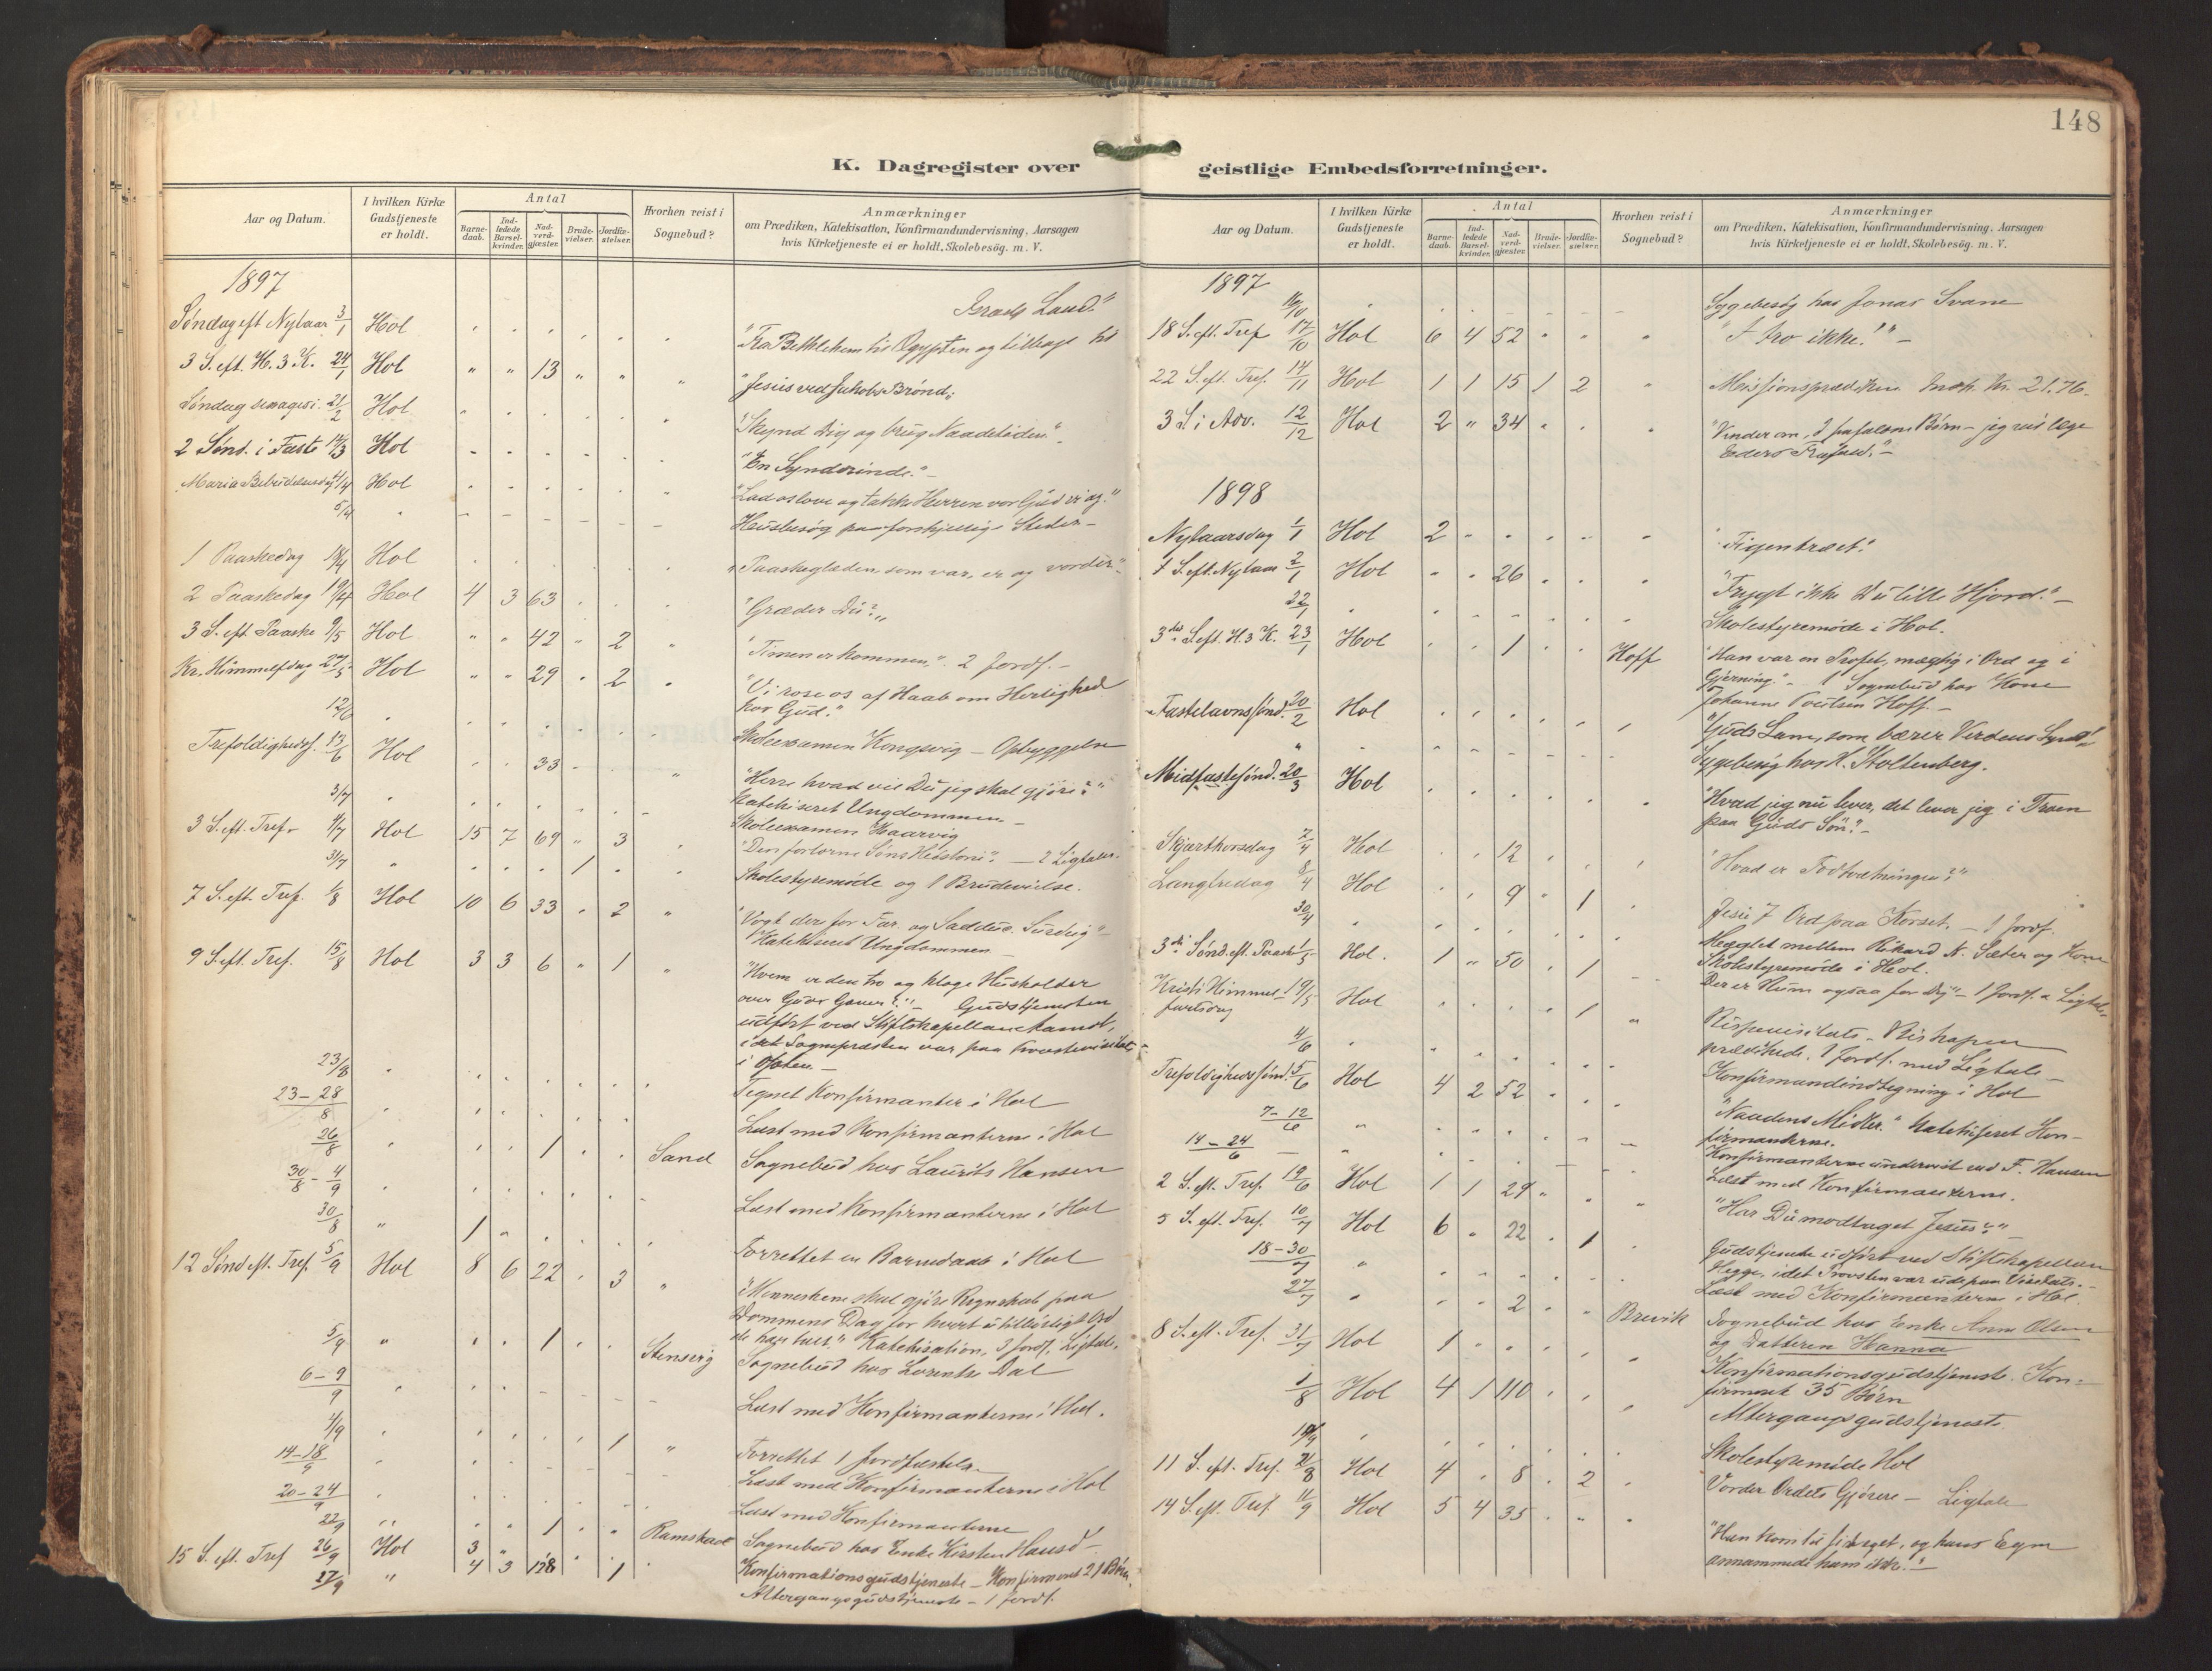 148
K. Dagregister over geistlige Embedsforretninger.
Aar og Datum.
I hvilken Kirke Gudstjeneste er holdt.
Antal
Barne-daab.
Ind-ledede Barsel-kvinder.
Nad-verd-gjæster.
Brude-vielser.
Jordfæ-stelser.
Hvorhen reist i Sognebud?
Anmærkninger
om Prædiken, Katekisation, Konfirmandundervisning, Aarsagen
hvis Kirketjeneste ei er holdt, Skolebesög. m. V.
1897
Israels Land."
Søndag eft Nytaar 3/1 Hol " Fra Bethlehem til Ægypten og tilbage til
3 S. eft. H. 3 K. 24/1 Hol " " 13 " " " "Jesus ved Jakobs Brønd"
Søndag sexages. 21/2 Hol "Skynd Dig og brug Naadetiden"
2 Sønd. i Faste 14/3 Hol "En Synderinde."
Maria Bebudelsesdag 4/4 Hol "Lad os love og takke Herren vor Gud"
5/4 " Husbesøg paa forskjellige Steder
1 Paaskedag 18/4 Hol "Paaskeglæden, som var, er og vorder"
2 Paaskedag 19/4 Hol 4 3 63 "Græder Du?"
3 S. eft Paaske 9/5 Hol " " 42 " 2 " "Timen er kommen". 2 Jordf.
Kr. Himmelfdag 27/5 Hol " " 29 " 2 " "Vi rose os af Haab om Herlighed
hos Gud."
12/6 " Skoleexamen Kongsvig - Opbyggelse
Trefoldighedsf. 13/6 Hol 33 "Herre hvad vil Du jeg skal gjøre?"
Katekiseret Ungdommen
3/7 " Skoleexamen Kaarvig
3 S. eft. Tref. 4/7 Hol 15 7 69 " 3 "Den forlorne Søns Historie". - 2 Ligtaler.
31/7 " 1 Skolestyremøde og 1 Brudevielse.
7 S. eft. Tref. 1/8 Hol 10 6 33 " 2 " "Vogt der for Far. og Saddus. Surdeig"
Katekiseret Ungdommen
9 S. eft. Tref. 15/8 Hol 3 3 6 " 1 " "Hvem er den tro og kloge Husholder
over Guds Gaver?" Gudstjenesten
udført ved Stiftskapellan
idet Sognepræsten var paa
i Ofoten.
23/8 " Tegnet Konfirmanter i Hol
23-28/8 " Læst med Konfirmanterne i Hol
26/8 " 1 Sand Sognebud hos Laurits Hansen
30/8 - 4/9 " Læst med Konfirmanterne i Hol
30/8 " 1 Forrettet en Barnedaab i Hol
12 Sønd eft. Tref. 5/9 Hol 8 6 22 " 3 " "Menneskene skal gjøre Regnskab paa
Dommens Dag for hvert utilbørligt Ord
de har talt." Katekisation, 3 Jordf., Ligtale.
5/9 " 1 Stensvig Sognebud hos Lorentse Dal
6-9/9 " Læst med Konfirmanterne i Hol.
11/9 " 1 " Forrettet 1 Jordfæstelse
14-18/9 " Læst med Konfirmanterne i Hol
20-24/9 Læst med Konfirmanterne
22/9 " 1 Ramstad Sognebud hos Enke Kirsten
15 S. eft. Tref 26/9 Hol 3 " Konfirmationsgudstjeneste - Konfirmeret 21 Børn.
27/9 " 4 3 128 " 1 Altergangsgudstjeneste - 1 Jordf.
Aar og Datum.
I hvilken Kirke Gudstjeneste er holdt.
Antal
Barne-daab.
Ind-ledede Barsel-kvinder.
Nad-verd-gjæster.
Brude-vielser.
Jordfæ-stelser.
Hvorhen reist i Sognebud?
Anmærkninger
om Prædiken, Katekisation, Konfirmandundervisning, Aarsagen
hvis Kirketjeneste ei er holdt, Skolebesög. m. V.
1897
16/10 " Sygebesøg hos Jonas Svane
18 S. eft. Tref 17/10 Hol 6 4 52 " " " ikke!"
22 S. eft. Tref. 14/11 Hol 1 1 15 1 2 " Missionsprædiken Indk. Kr. 21.76.
3 S. i Adv. 12/12 Hol 2 " 34 " " " "Vender om, I frafaldne Børn - jeg vil læge
Eders Frafald."
1898
Nytaarsdag 1/1 Hol 2 "Figentræet."
1 S. eft. Nytaar 2/1 Hol " " 26 "Frygt ikke Du lille Hjord."
22/1 " Skolestyremøde i Hol.
3die S. eft. H. 3 K. 23/1 Hol 1 Hoff "Han var en Profet, mægtig i Ord og i
Gjerning." - 1 Sognebud hos Kone
Johanne Poulsen Hoff.
Fastelavnssønd. 20/2 Hol "Guds Lam, som bærer Verdens Synd"
" Sygebesøg hos H. Stoltenberg.
Midfastesønd. 20/3 Hol "Hvad jeg nu lever, det lever jeg i Troen
paa Guds Søn."
Skjærthorsdag 7/4 Hol 12 "Hvad er Fodtvætningen?"
Langfredag 8/4 Hol 9 " 1 Jesu 7 Ord paa Korset. - 1 Jordf.
30/4 " Megglet mellem Rikard N. Sæter og Kone
Skolestyremøde i Hol.
3die Sønd. eft. Paaske 1/5 Hol. 1 " 50 " 1 Der er Rum ogsaa for Dig" - 1 Jordf. &amp; Ligtale
Kristi Himmel-
fartsdag 19/5 Hol 1 " Bispevisitats. Biskopen
prædikede. 1 Jordf. med Ligtale
4/6 " Konfirmandindtegning i Hol
Trefoldighedssønd. 5/6 Hol 4 2 52 "Naadens Midler." Katekiseret Kon-
firmanterne.
7-12/6 " Konfirmanterne undervist ved F. Hansen
14-24/6 " Læst med Konfirmanterne.
2 S. eft. Tref. 19/6 Hol 1 1 29 "Har Du modtaget Jesus?"
5 S. eft. Tref. 10/7 Hol 6 " 22 " 1 Gudstjeneste udført ved Stiftskapellan
Hegge, idet Provsten var ude paa Visitats.
18-30/7 " Læst med Konfirmanterne i Hol.
27/7 " 2 Brevik Sognebud hos Enke Anne Olsen
og Datteren Hanna
8 S. eft. Tref. 31/7 Hol 1 Konfirmationsgudstjeneste. Kon-
firmeret 35 Børn
1/8 Hol 4 1 110 Altergangsgudstjeneste
" Skolestyremøde Hol
11 S. eft. Tref. 21/8 Hol 4 " 8 " 2 Vorder Ordets Gjørere - Ligtale
14 S. eft. Tref. 11/9 Hol 5 4 35 "Han kom til sit eget, og hans Egne
annammede ham ikke."